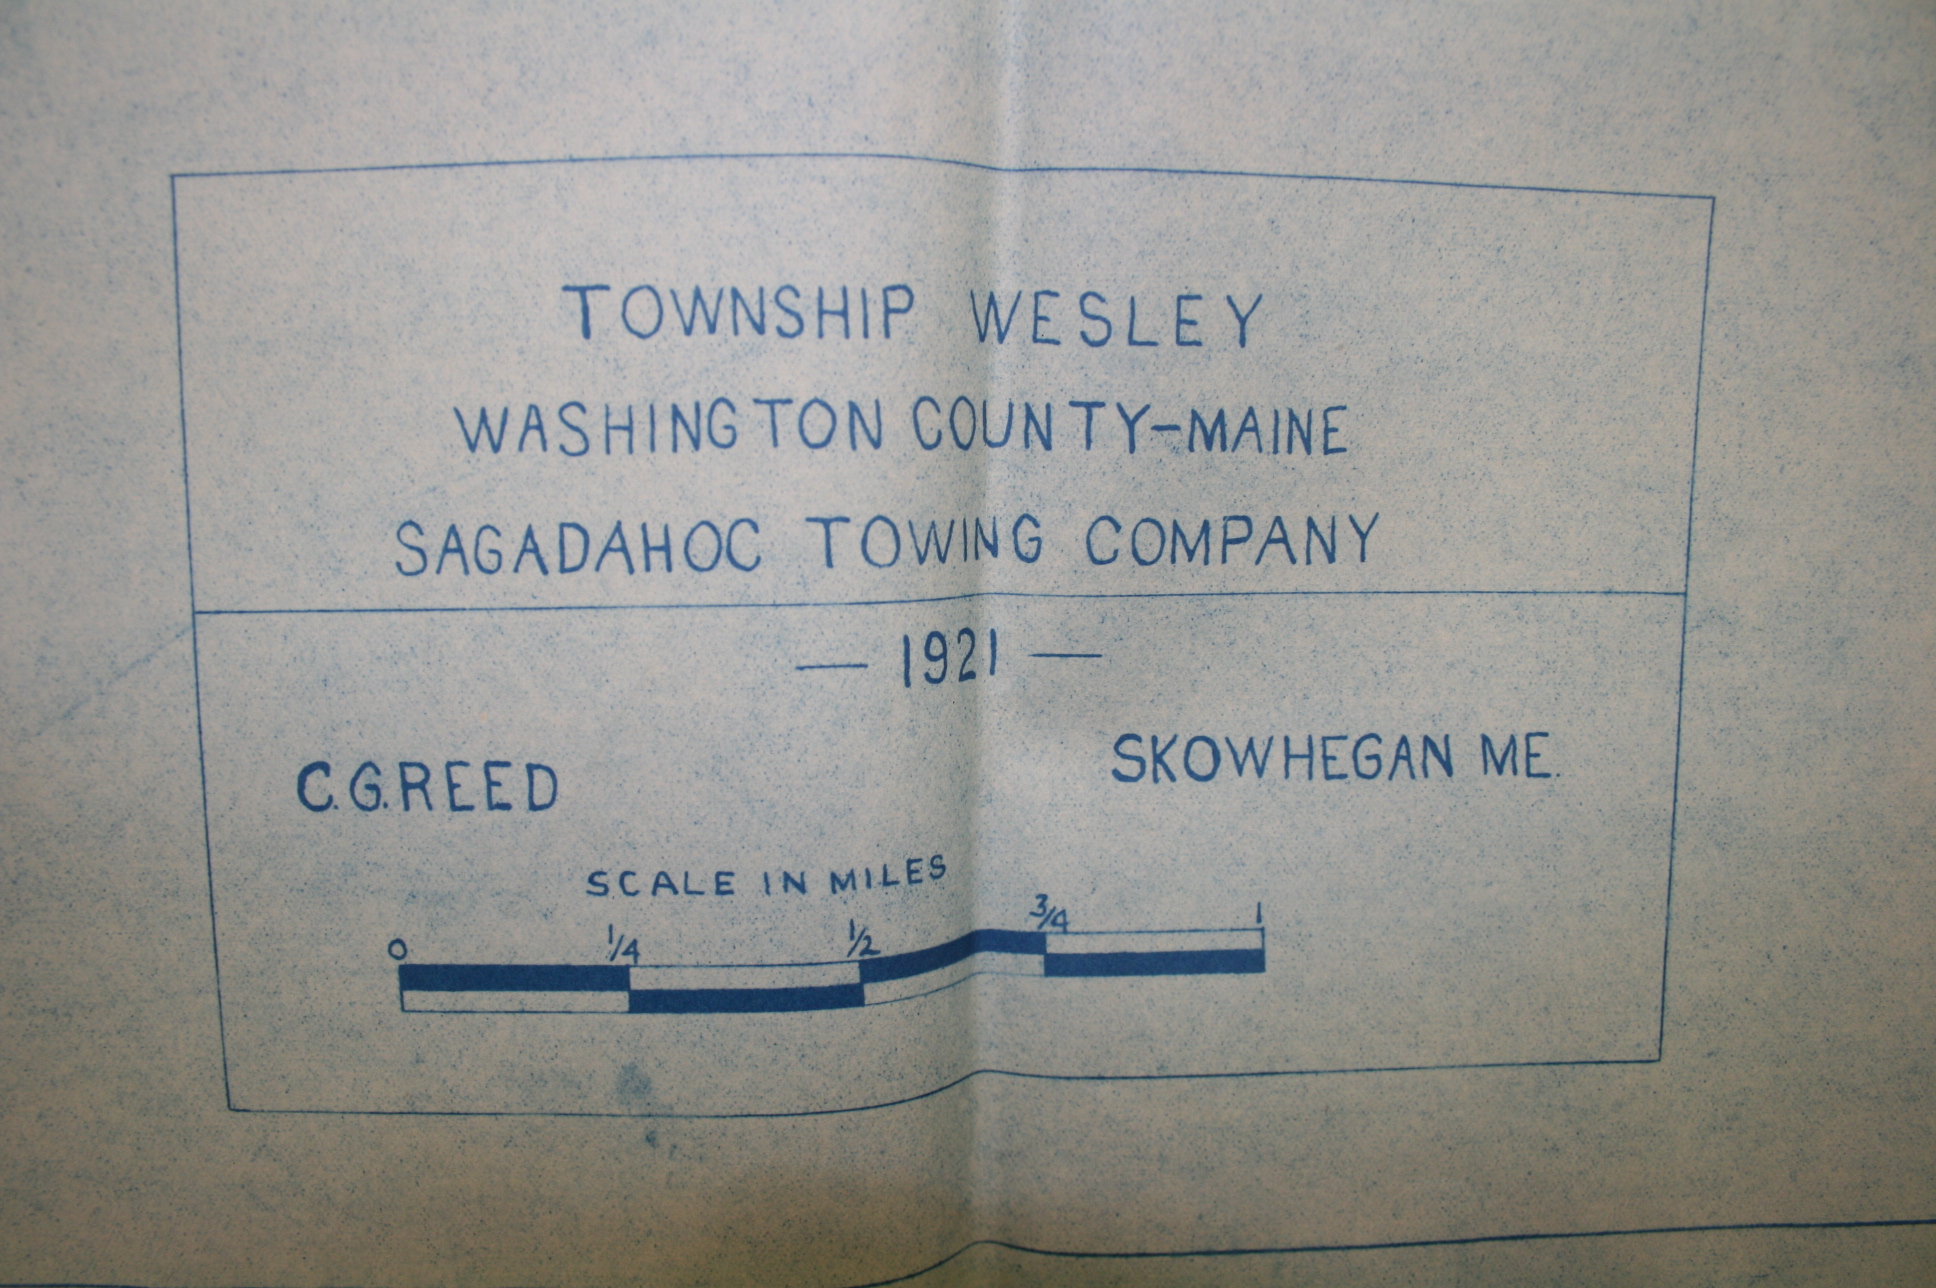 TOWNSHIP WESLEY
WASHINGTON COUNTY-MAINE
SAGADAHOC TOWING COMPANY
— 1921 —
C.G.REED
SKOWHEGAN ME.
SCALE IN MILES
0 1/4 1/2 3/4 1